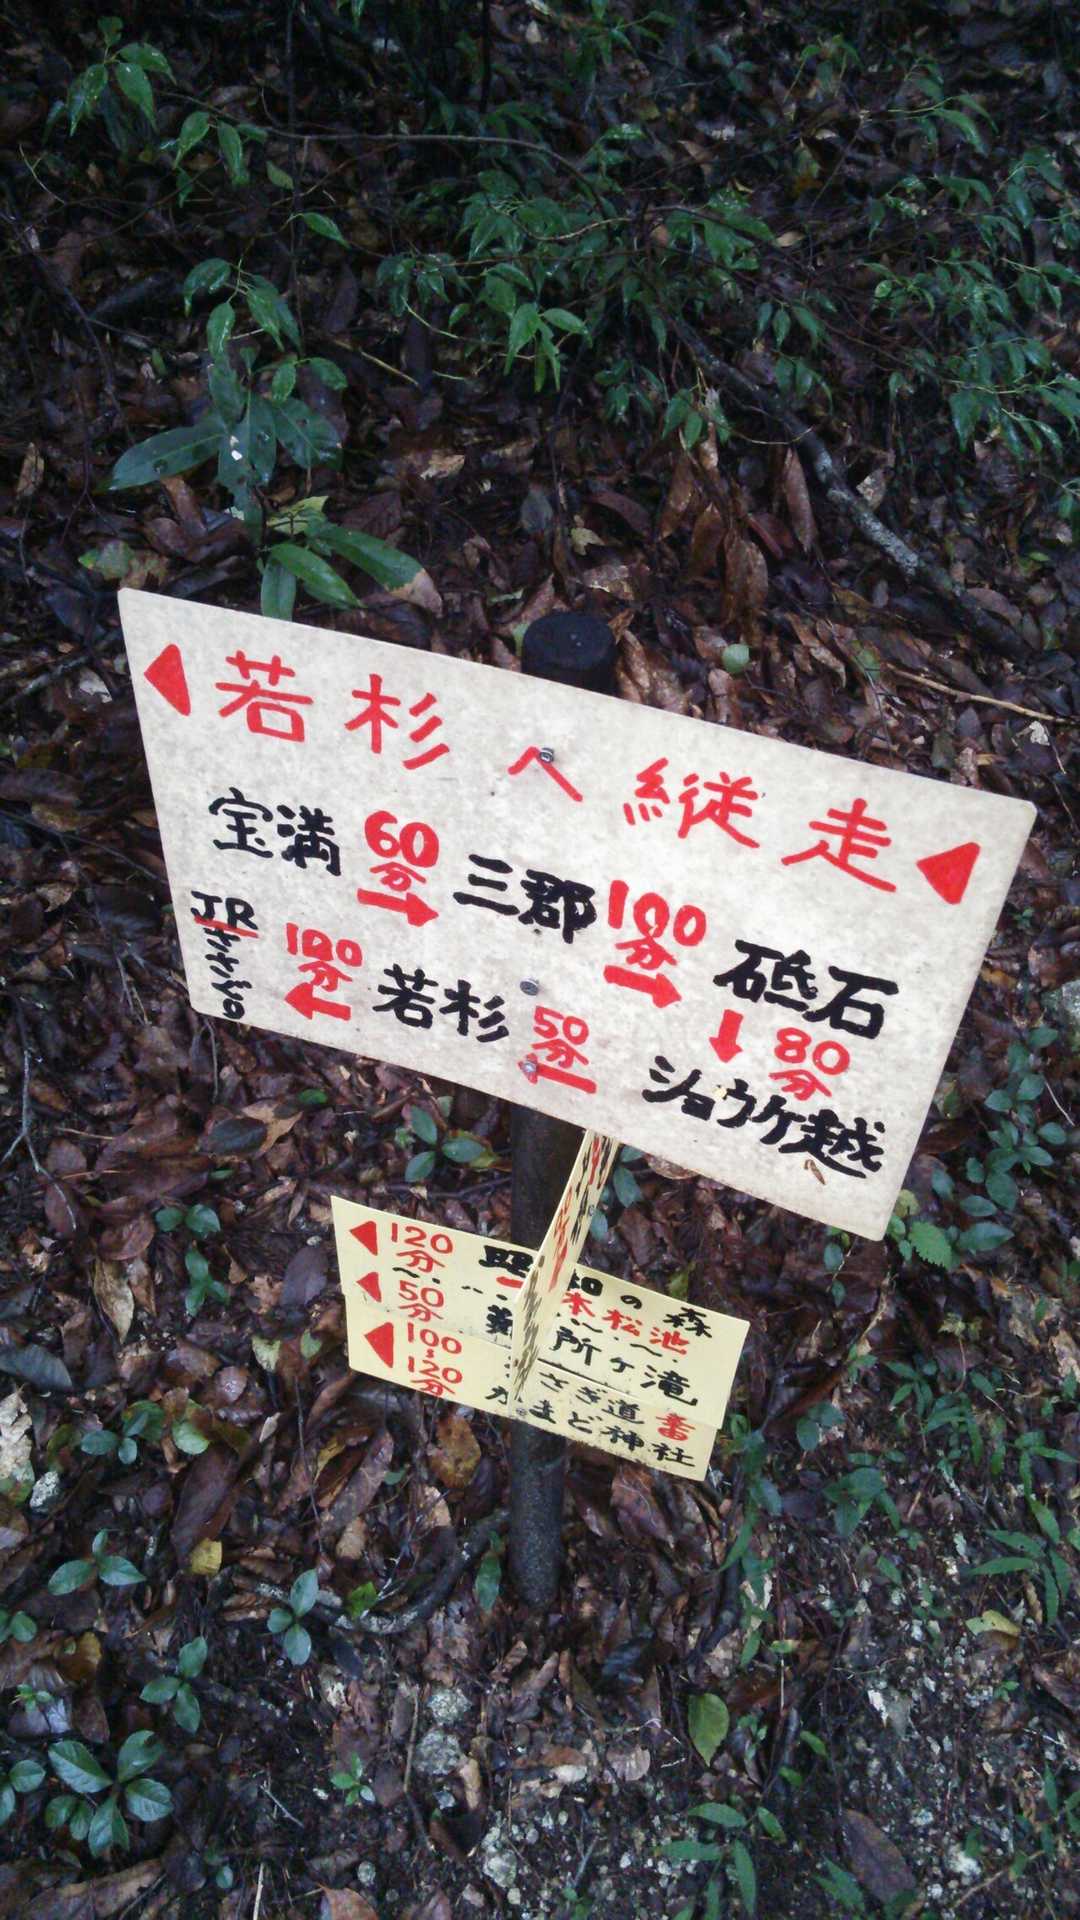 ◀若杉へ縦走◀
宝満 60分→ 三郡 100分→ 砥石
↓80分
JRササグリ 100分← 若杉 50分← ショウケ越
◀120分 昭和の森
〜 〜
一本松池
◀50分 難所ヶ滝
◀100〜120分 うさぎ道
かまど神社